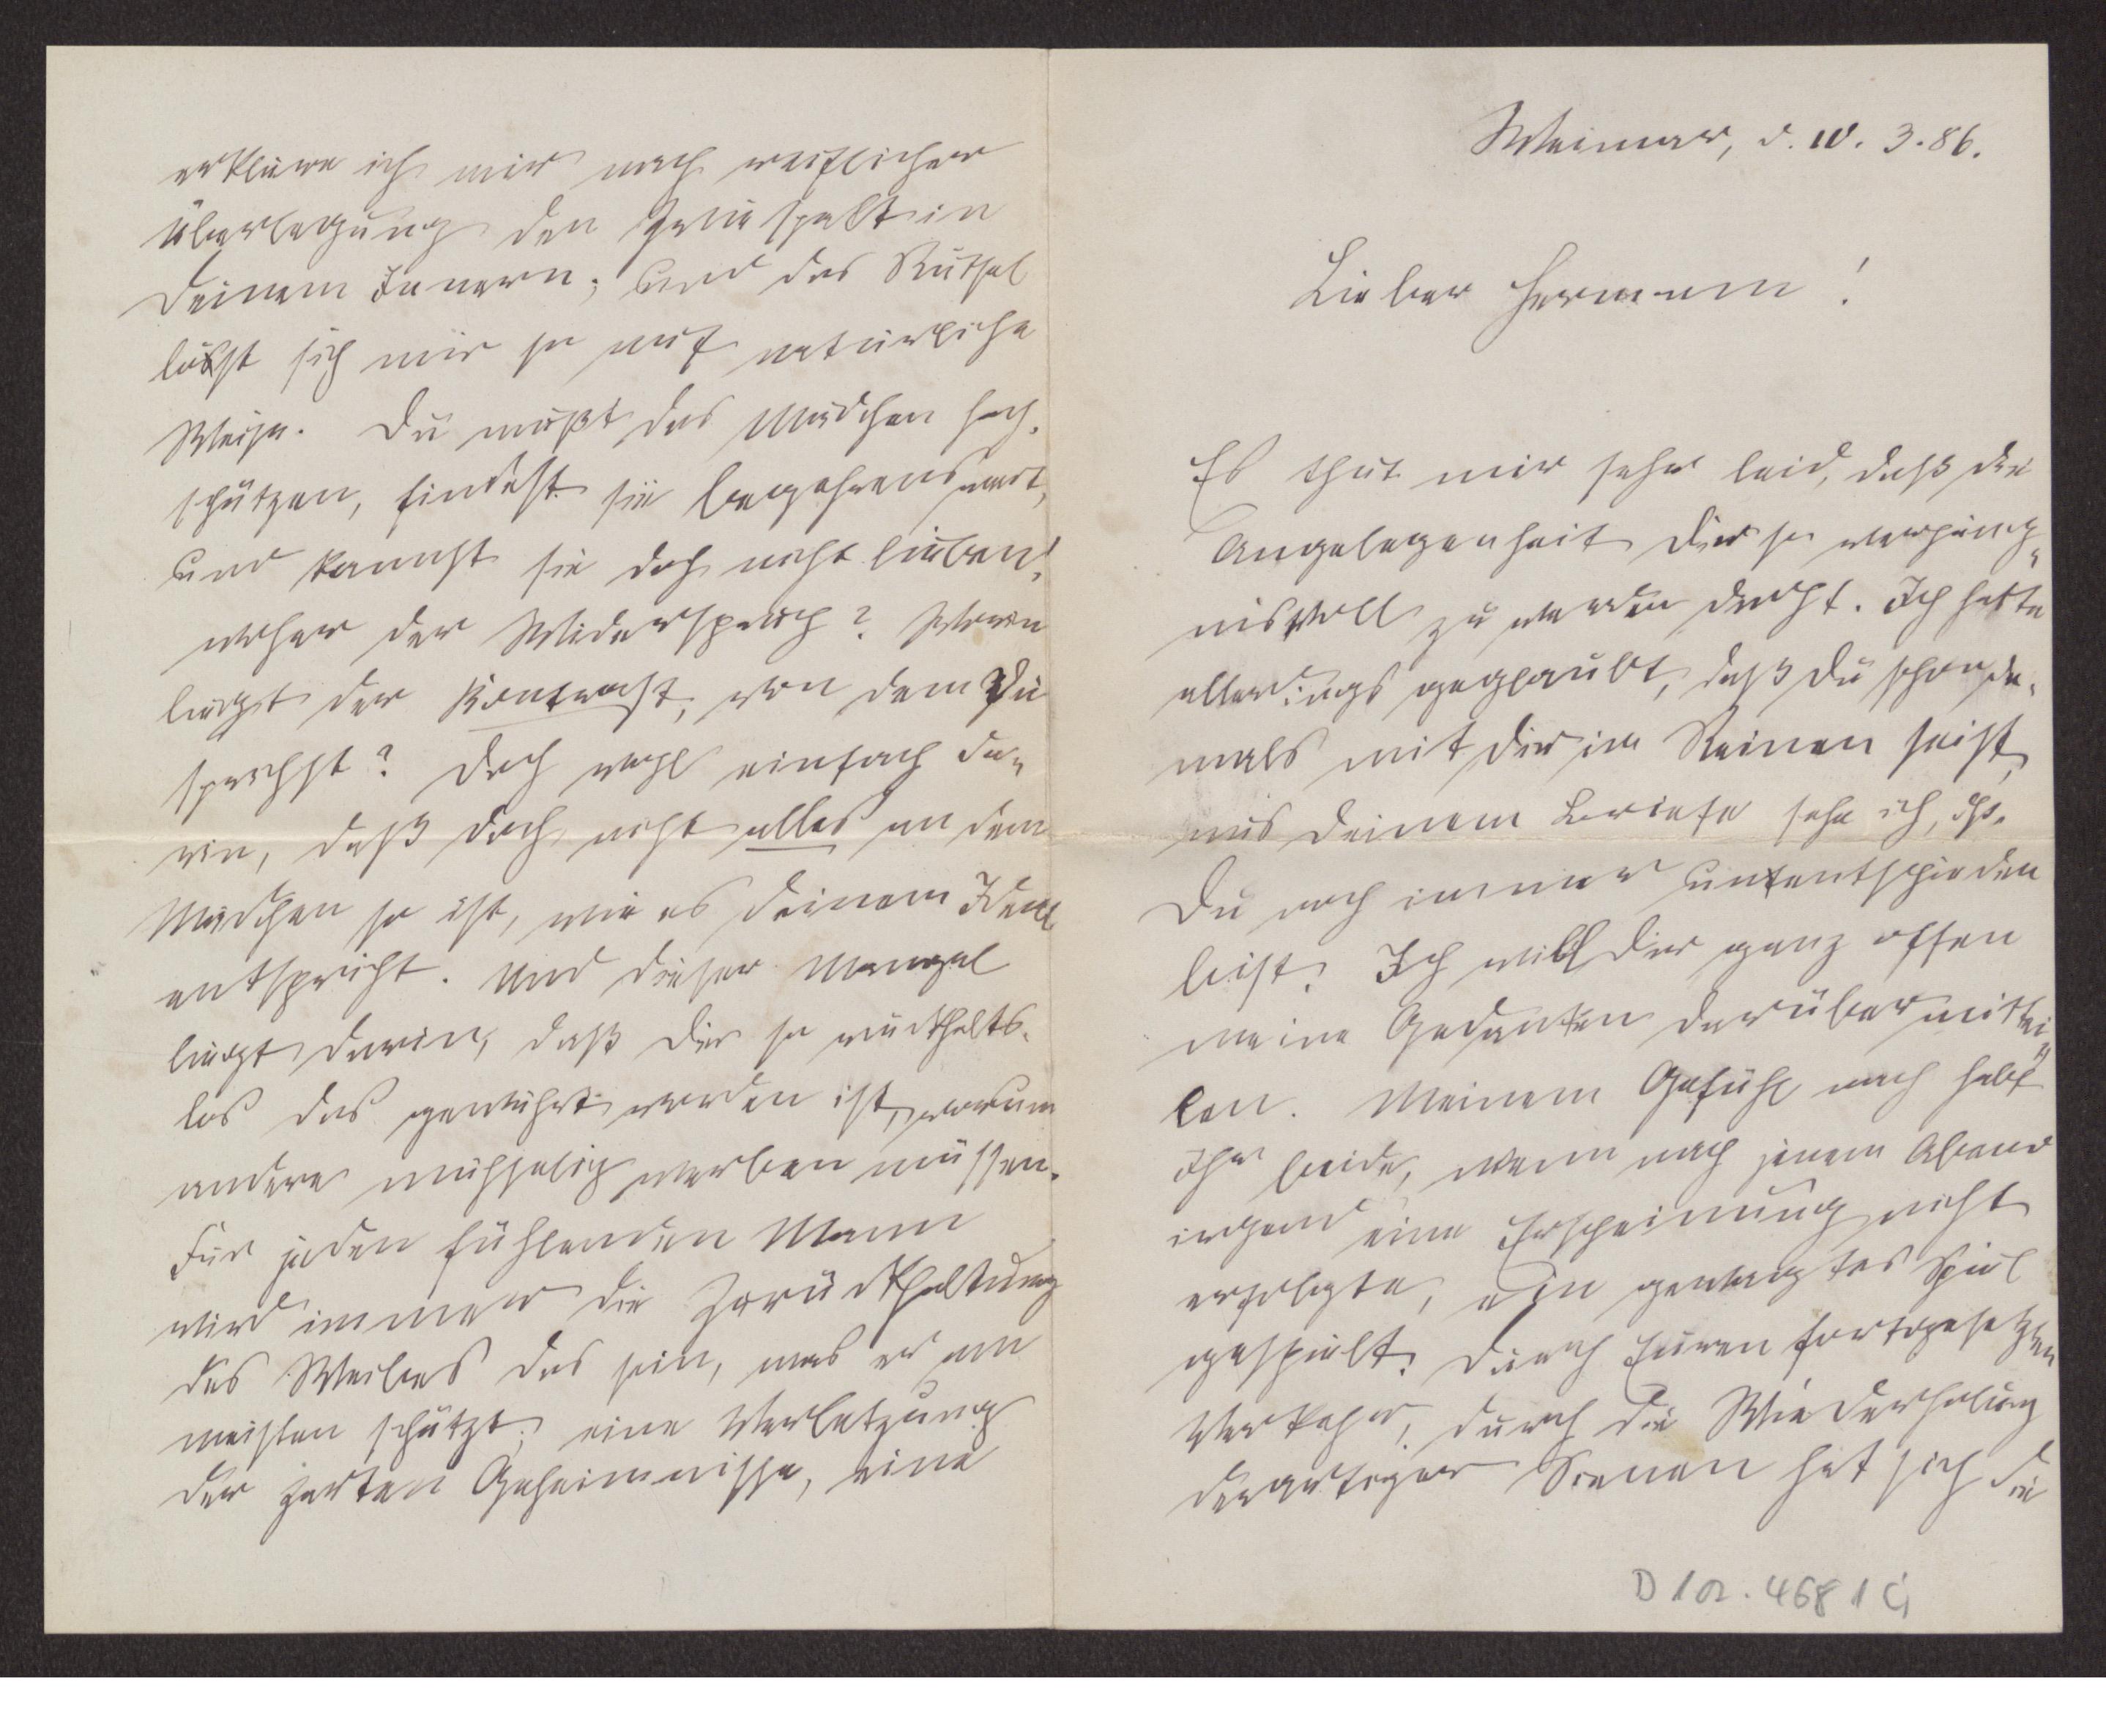 Weimar, d. 10. 3. 86.
Lieber Hermann!
Es thut mir sehr leid, daß die
Angelegenheit Dir so verhäng-
nisvoll zu werden droht. Ich hatte
allerdings geglaubt, daß Du schon da-
mals mit Dir im Reinen seist,
aus Deinem Briefe sehe ich, daß
Du noch immer unentschieden
bist. Ich will Dir ganz offen
meine Gedanken darüber mittei-
len. Meinem Gefühl nach habt
ihr beide, wenn nach jenem Abend
irgend eine Erscheinung nicht
erfolgte, ein gewagtes Spiel
gespielt. Durch Euren fortgesetzten
Verkehr, durch die Wiederholung
derartiger Scenen hat sich die
D 1a. 4681 G
erkläre ich mir nach reiflicher
Überlegung den Zwiespalt in
Deinem Innern; und das Rätsel
löst sich mir so auf natürliche
Weise. Du mußt das Mädchen hoch-
schätzen, findest sie begehrenswert,
und kannst sie doch nicht lieben!
woher der Widerspruch? Worin
liegt der Kontrast, von dem Du
sprichst? Doch wohl einfach da-
rin, daß doch nicht alles an dem
Mädchen so ist, wie es Deinem Ideal
entspricht. Und dieser Mangel
liegt darin, daß Dir so rückhalts-
los das gewährt worden ist, worum
andere mühselig werben müssen.
Für jeden fühlenden Mann
wird immer die Zurückhaltung
des Weibes das sein, was er am
meisten schätzt; eine Verletzung
der zarten Geheimnisse, eine